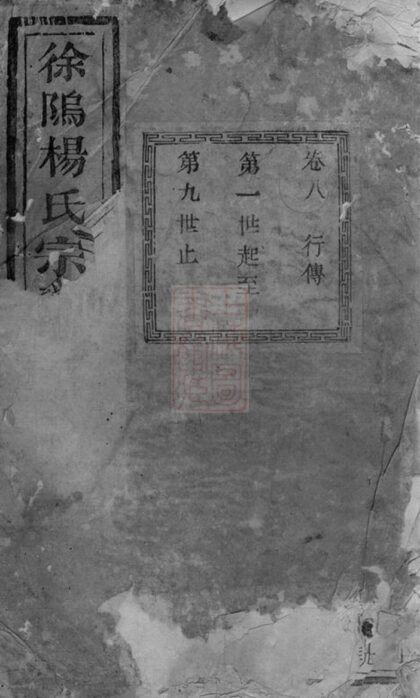 徐隖楊氏宗
卷八 行傳
第一世起至
第九世止